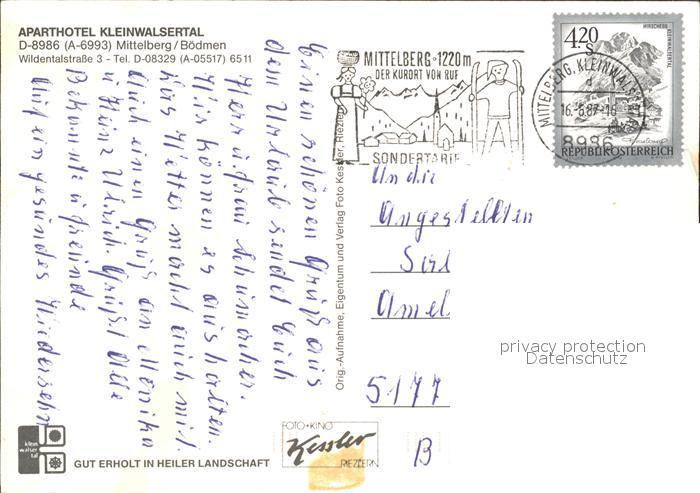 APARTHOTEL KLEINWALSERTAL
D-8986 (A-6993) Mittelberg/Bödmen
Wildentalstraße 3 - Tel. D-08329 (A-05517) 6511
MITTELBERG·1220m
DER KURORT VON RUF
SONDERTARIF
MITTELBERG, KLEINWALS
16.-6.87-16
8986
4,20
S
HIRSCHEGG
KLEINWALSERTAL
REPUBLIK ÖSTERREICH
Einen schönen Gruß aus
dem Urlaub sendet Euch
Herr u. Frau Schumacher.
Wir können es aushalten
das Wetter macht auch mit.
Auch einen Gruß an Monika
u. Heinz Ulrich. Grüßt Alle
Bekannte u. Freunde
Auf ein gesundes Wiedersehn
Orig.-Aufnahme, Eigentum und Verlag Foto Kessler, Riezlern
An die
Angestellten
Amel
5177
B
privacy protection
Datenschutz
klein
walser
tal
GUT ERHOLT IN HEILER LANDSCHAFT
FOTO+KINO
Kessler
RIEZLERN